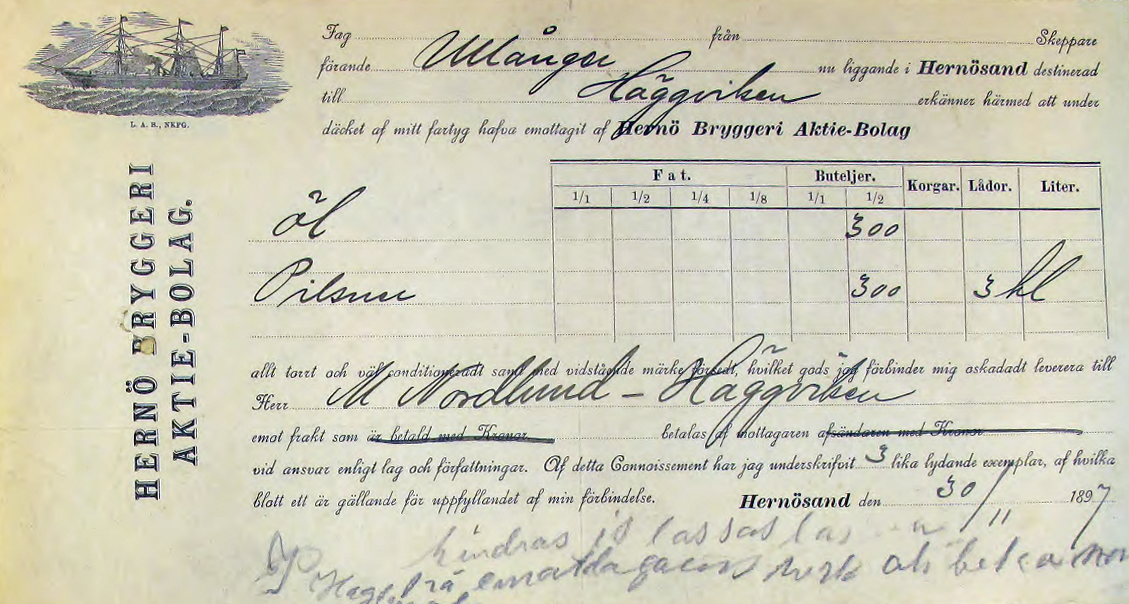 L. A. B., NKPG.
HERNÖ BRYGGERI
AKTIE-BOLAG.
Jag från Skeppare
förande Ullånger nu liggande i Hernösand destinerad
till Häggviken erkänner härmed att under
däcket af mitt fartyg hafva emottagit af Hernö Bryggeri Aktie-Bolag
Fat. Buteljer. Korgar. Lådor. Liter.
1/1 1/2 1/4 1/8 1/1 1/2
öl 300
Pilsner 300 3 kl
allt torrt och väl conditioneradt samt med vidstående märke försedt, hvilket gods jag förbinder mig oskadadt leverera till
Herr M Nordlund – Häggviken
emot frakt som är betald med Kronor betalas af mottagaren afsändaren med Kronor
vid ansvar enligt lag och författningar. Af detta Connoissement har jag underskrifvit 3 lika lydande exemplar, af hvilka
blott ett är gällande för uppfyllandet af min förbindelse. Hernösand den 30/11 1897
hindras